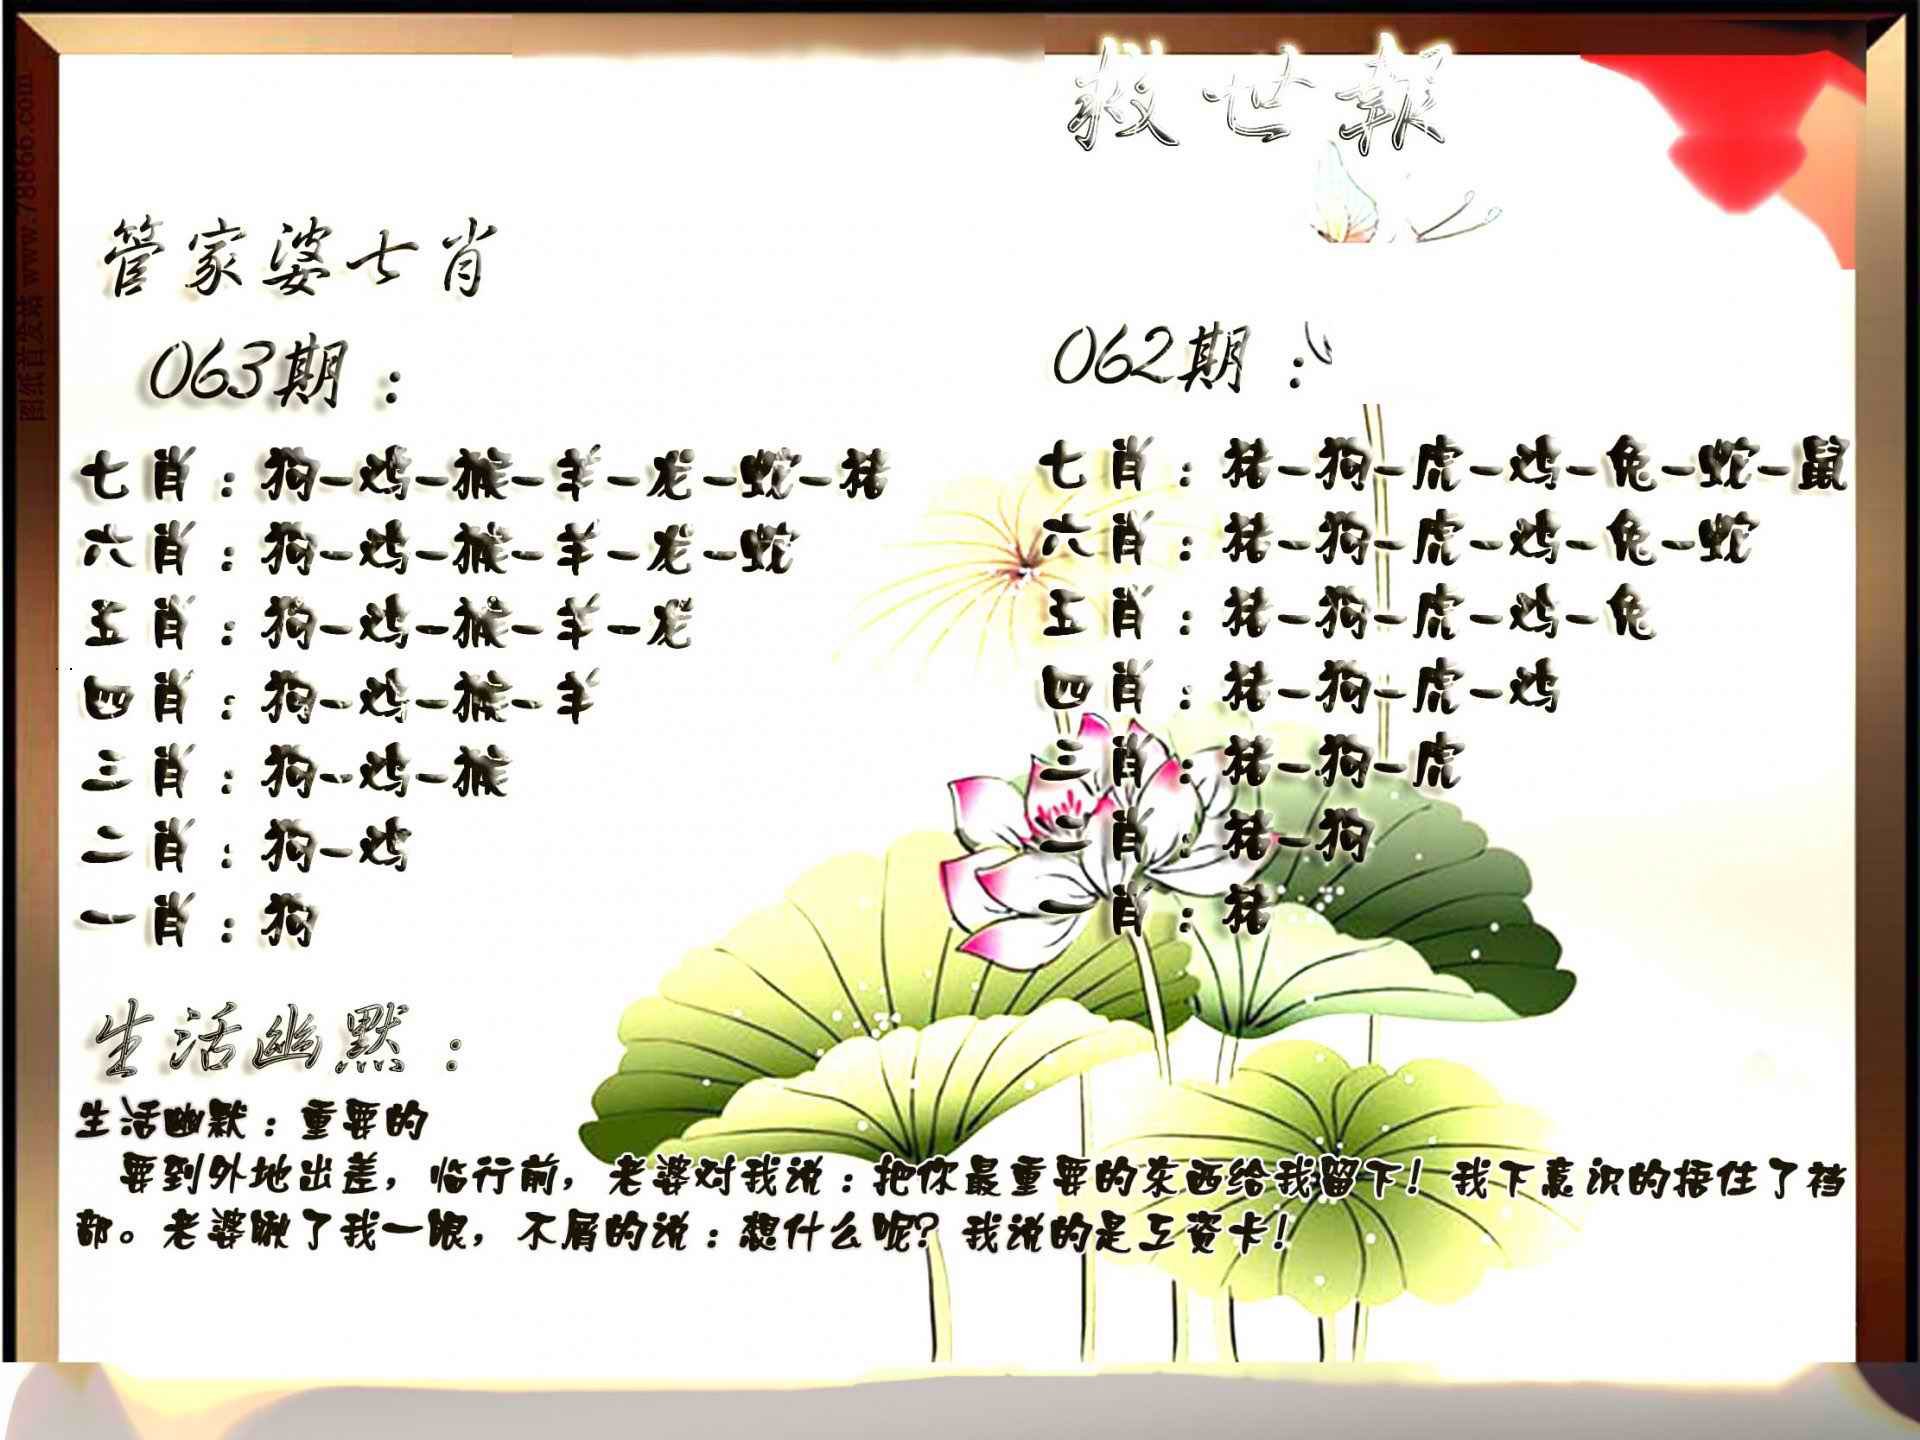 救世報
管家婆七肖
063期：
七肖：狗-鸡-猴-羊-龙-蛇-猪
六肖：狗-鸡-猴-羊-龙-蛇
五肖：狗-鸡-猴-羊-龙
四肖：狗-鸡-猴-羊
三肖：狗-鸡-猴
二肖：狗-鸡
一肖：狗
062期：
七肖：猪-狗-虎-鸡-兔-蛇-鼠
六肖：猪-狗-虎-鸡-兔-蛇
五肖：猪-狗-虎-鸡-兔
四肖：猪-狗-虎-鸡
三肖：猪-狗-虎
二肖：猪-狗
一肖：猪
生活幽默：
生活幽默：重要的
要到外地出差，临行前，老婆对我说：把你最重要的东西给我留下！我下意识的捂住了裆
部。老婆瞅了我一眼，不屑的说：想什么呢？我说的是工资卡！
图纸首发站 www.78866.com